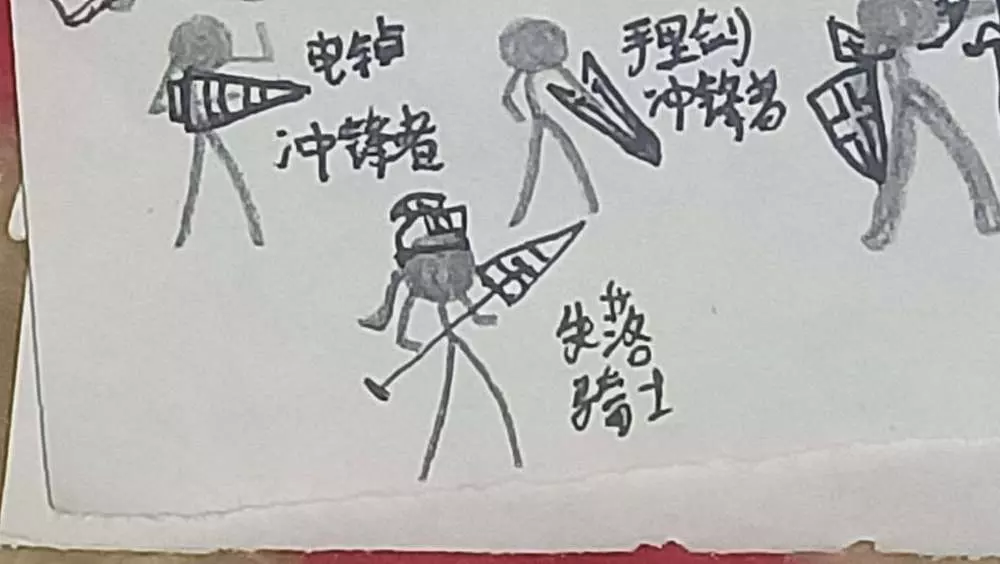 电钻
冲锋者
手里剑
冲锋者
失落
骑士